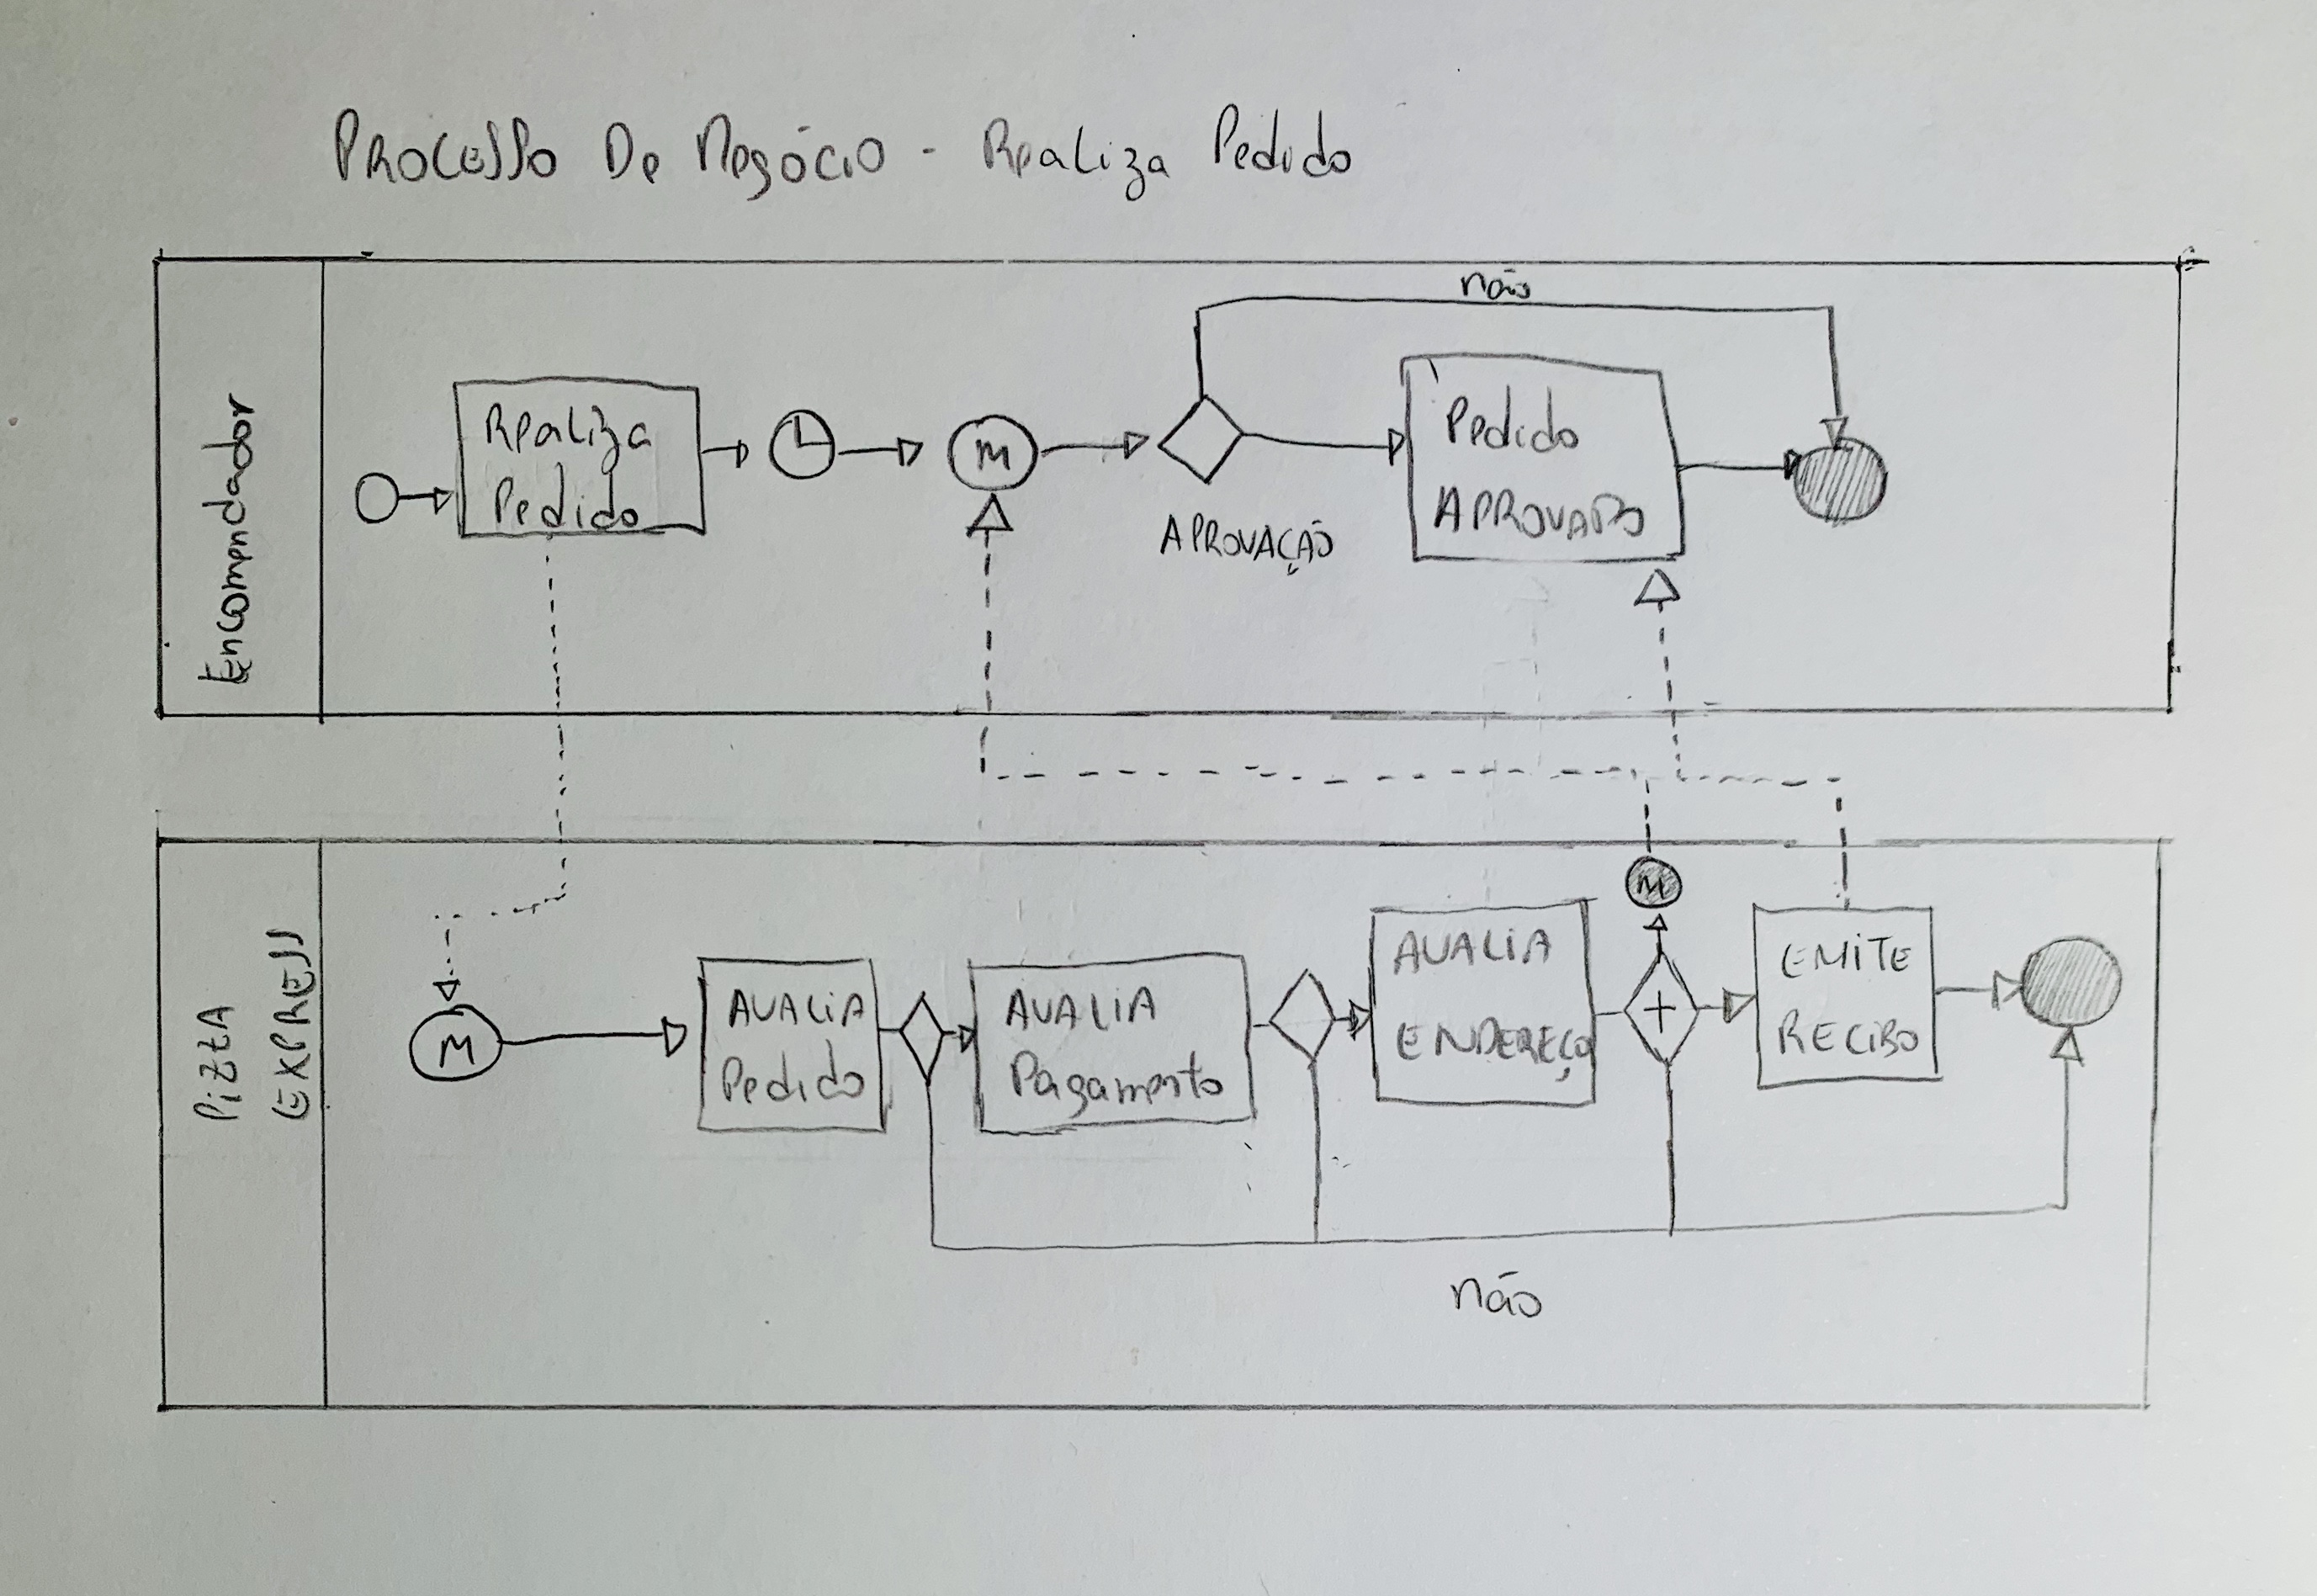 PROCESSO De Negócio - Realiza Pedido
não
Encomendador
Realiza
Pedido
M
APROVAÇÃO
Pedido
APROVADO
PIZZA
EXPRESS
M
AVALIA
Pedido
AVALIA
Pagamento
AVALIA
ENDEREÇO
M
EMITE
RECIBO
não